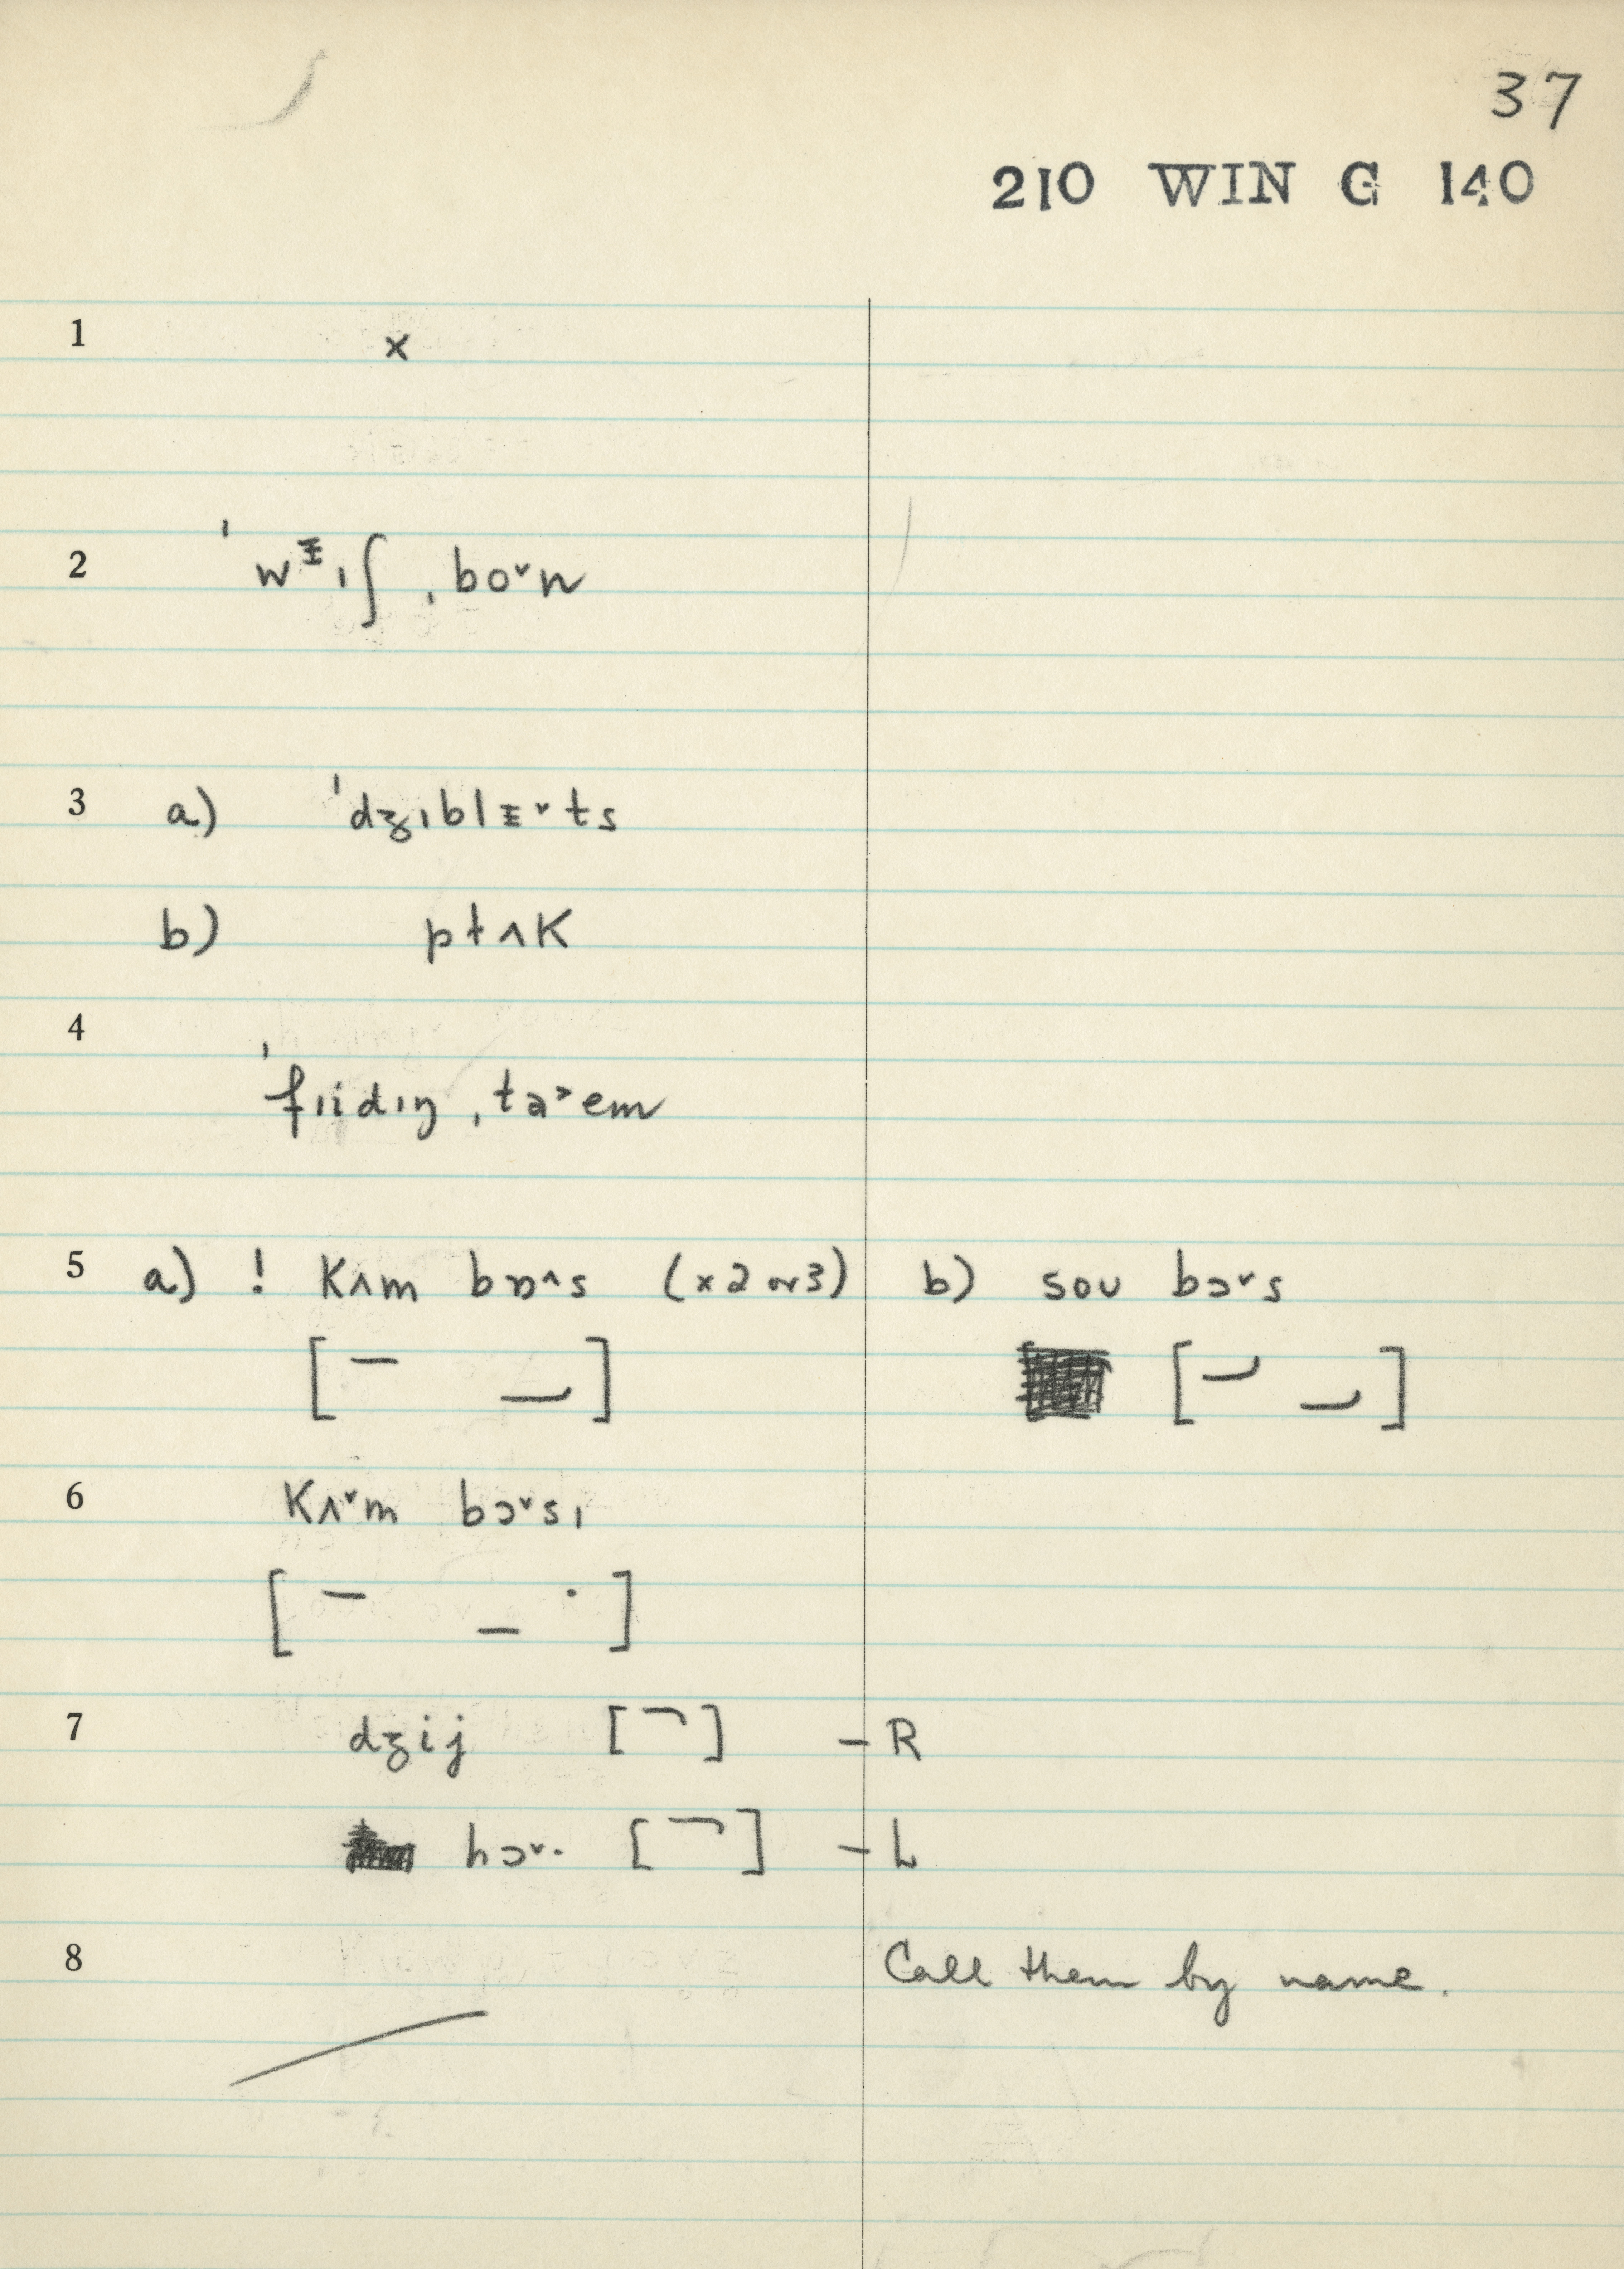 37
210 WIN G 140
1 x
2 ˈwᵻɪʃ ˌbo˅n
3 a) ˈdʒɪblᵻ˅ts
b) pɫʌk
4 ˈfɪidɪŋ ˌta˃em
5 a) ! kʌm bɒ^s (x2 or 3) b) soʊ bɔ˅s
6 kʌ˅m bɔ˅sɪ
7 dʒij [ ] – R
hɔ˅· [ ] – L
8 Call them by name.